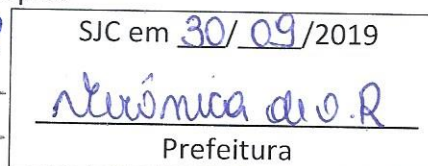 SJC em 30/09/2019
Verônica de O.R
Prefeitura